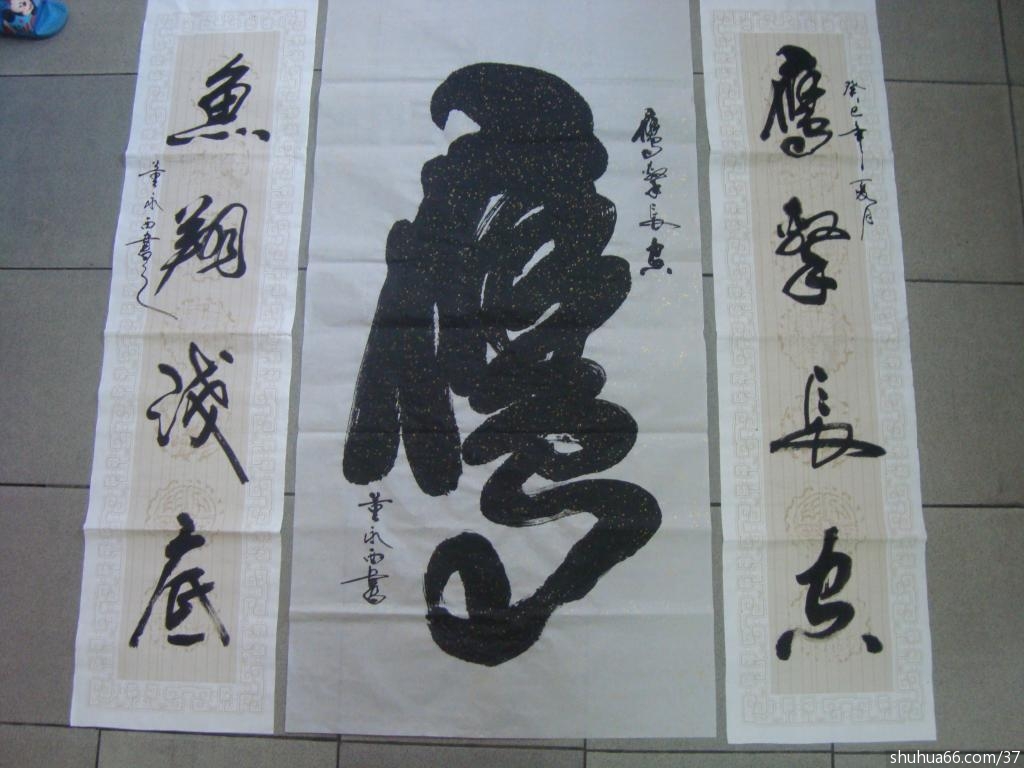 癸巳年夏月
鹰击長空
鷹擊長空
鷹
董永西書
魚翔淺底
董永西書之
shuhua66.com/37